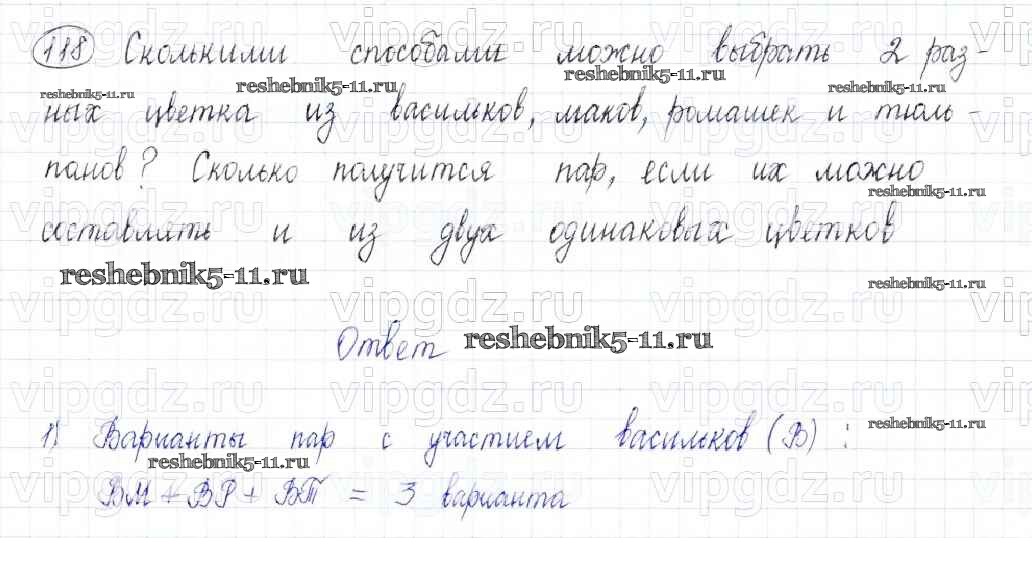 118 Сколькими способами можно выбрать 2 раз-
ных цветка из васильков, маков, ромашек и тюль-
панов? Сколько получится пар, если их можно
составлять и из двух одинаковых цветков
Ответ
1) Варианты пар с участием васильков (В):
ВМ + ВР + ВТ = 3 варианта
vipgdz.ru
reshebnik5-11.ru